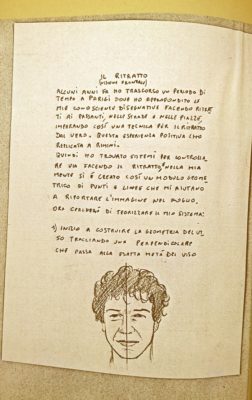 IL RITRATTO
(VISIONE FRONTALE)
ALCUNI ANNI FA HO TRASCORSO UN PERIODO DI
TEMPO A PARIGI DOVE HO APPROFONDITO LE
MIE CONOSCENZE DISEGNATIVE FACENDO RITRAT
TI AI PASSANTI, NELLE STRADE E NELLE PIAZZE,
IMPARANDO COSÍ UNA TECNICA PER IL RITRATTO
DAL VERO. QUESTA ESPERIENZA POSITIVA L'HO
REPLICATA A RIMINI.
QUINDI HO TROVATO SISTEMI PER CONTROLLA
RE VIA FACENDO IL RITRATTO, NELLA MIA
MENTE SI É CREATO COSÍ UN MODULO GEOME
TRICO DI PUNTI E LINEE CHE MI AIUTANO
A RIPORTARE L'IMMAGINE NEL FOGLIO.
ORA CERCHERÓ DI TEORIZZARE IL MIO SISTEMA:
1) INIZIO A COSTRUIRE LA GEOMETRIA DEL VI
SO TRACCIANDO UNA PERPENDICOLARE
CHE PASSA ALLA ESATTA METÁ DEL VISO